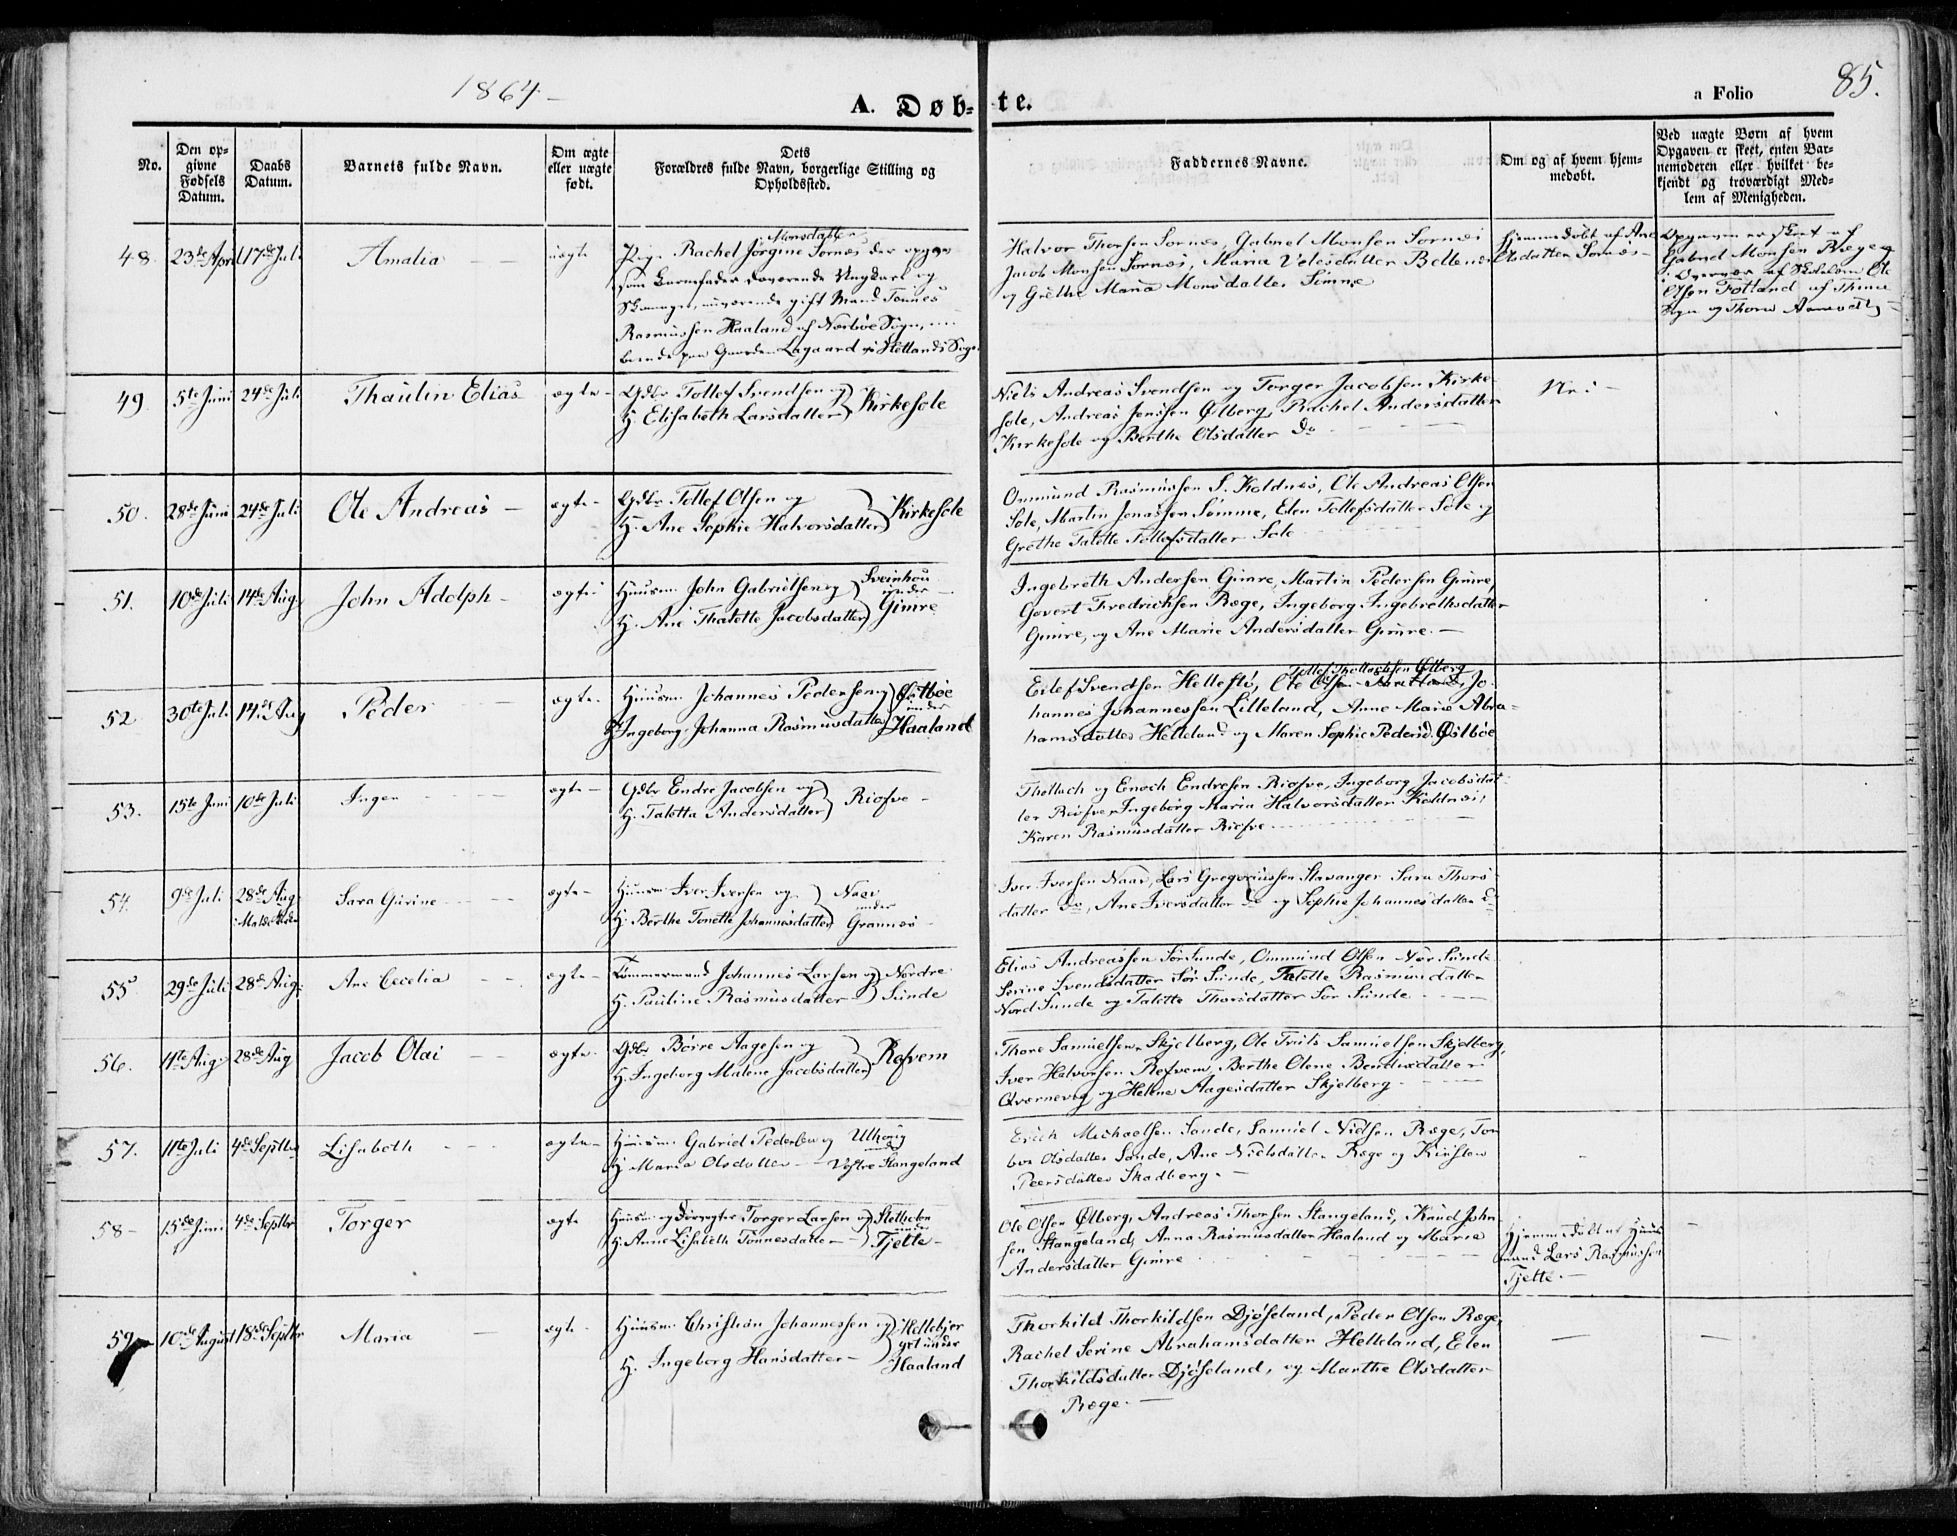 1864
A. Døb-
te.
a Folio
85.
No.
Den op-
givne
Fødsels
Datum.
Daabs
Datum.
Barnets fulde Navn.
Om ægte
eller uægte
født.
Dets
Forældres fulde Navn, borgerlige Stilling og
Opholdssted.
Faddernes Navne.
Om og af hvem hjem-
medøbt.
Ved uægte Børn af hvem
Opgaven er skeet, enten Bar-
nemoderen eller hvilket be-
kjendt og troværdigt Med-
lem af Menigheden.
48.
23de April
17de Juli
Amalia
uægte
Monsdatter
Pige Rachel Jørgine Sørnes der opgav
som Barnefader daværende Ungkarl og
nuværende gift Mand Tønnes
Rasmussen Haaland af Nærbøe Sogn,
boende paa Gaarden Lagaard i Hetlands Sogn
Halvor Thorsen Sørnes, Gabriel Monsen Sørnes
Jacob Monsen Sørnes, Maria Velesdatter
og Grethe Maria Monsdatter Sømme
Hjemmedøbt af Ane
Olsdatter Sørnes
Opgaven er skeet af
Gabriel Monsen Ræge
i Overvær af Ole
Olsen Fotland af Thime
Sogn og Thore
49
5te Juni
24de Juli
Thaulin Elias
ægte
Gdbr Tollef Svendsen og
H. Elisabeth Larsdatter
Kirkesole
Niels Andreas Svendsen og Torger Jacobsen Kirke-
sole, Andreas Jenssen Ølberg, Rachel Andersdatter
Kirkesole og Berthe Olsdatter Do
Nei
50.
28de Juni
24de Juli
Ole Andreas
ægte
Gdbr Tollef Olsen og
H. Ane Sophie Halvorsdatter
Kirkesole
Ommund Rasmussen S. Koldnes, Ole Andreas Olsen
Sole, Martin Jonassen Sømme, Elen Tollefsdatter Sole og
Grethe Talette Tollefsdatter Sole
51.
10de Juli
14de Aug
John Adolph
ægte
Huusm John Gabrielsen og
H. Ane Thalette Jacobsdatter
Sveinhou
under
Gimre
Ingebreth Andersen Gimre, Martin Pedersen Gimre,
Govert Fredrichsen Ræge, Ingeborg Ingebrethsdatter
Gimre, og Ane Marie Andersdatter Gimre.
52.
30te Juli
14de Aug
Peder
ægte
Huusm Johannes Pedersen og
H. Ingeborg Johanna Rasmusdatter
Østbøe
under
Haaland
Tollef Thollachsen Ølberg
Eilef Svendsen Hellestø, Ole Olsen Jo-
hannes Johannessen Lilleland, Anne Marie Abra-
hamsdatter Helleland og Maren Sophie Pedersd. Østbøe
53.
15te Juni
10de Juli
Inger
ægte
Gdbr Endre Jacobsen og
H. Taletta Andersdatter
Risfve
Thollach og Enoch Endresen Risfve, Ingeborg Jacobsdat-
ter Risfve, Ingeborg Maria Halvorsdatter Koldnes,
Karen Rasmusdatter Risfve
54.
9de Juli
28de Aug
Sara Gurine
ægte
Huusm Iver Iversen og
H. Berthe Tonette Johannesdatter
Naav
under
Grannes
Iver Iversen Naav, Lars Gregoriussen Stavanger Sara Thors-
datter Do, Ane Iversdatter do og Sophie Johannesdatter do
55
29de Juli
28de Aug.
Ane Cecelia
ægte
Tømmermand Johannes Larsen og
H. Pauline Rasmusdatter
Nordre
Sunde
Elias Andreassen Sør Sunde, Ommund Olsen Sør Sunde
Serine Svendsdatter Sør Sunde, Talette Rasmusdatter
Nord Sunde og Talette Thorsdatter Sør Sunde
56.
11te Aug
28de Aug
Jacob Olai
ægte
Gdbr Børre Aagesen og
H. Ingeborg Malene Jacobsdatter
Røfvem
Thore Samuelsen Skjelberg, Ole Truls Samuelsen Skjelberg,
Iver Halvorsen Røfvem, Berthe Olene Bendixdatter
Qværnevig og Helene Aagesdatter Skjelberg
57.
11te Juli
4de Septbr
Lisabeth
ægte
Huusm Gabriel Pedersen og
H Maria Olsdatter
Ulhoug
under
Vestre Stangeland
Erich Michaelsen Sande, Samuel Nielsen Ræge, Tor-
bor Olsdatter Sande, Ane Nielsdatter Ræge og Kirsten
Peersdatter Skadberg
58
15de Juni
4de Septbr
Torger
ægte
Huusm og Torger Larsen og
H. Anne Lisabeth Tønnesdatter
under
Tjelte
Ole Olsen Ølberg, Andreas Thorsen Stangeland, Knud John-
sen Stangeland, Anna Rasmusdatter Haaland og Marie
Andersdatter Gimre
Hjemmedøbt af Huus-
mand Lars Rasmussen
Tjelte.
59
10de August
18de Septbr
Maria
ægte
Huusm Christian Johannessen og
H. Ingeborg Hansdatter
under
Haaland
Thorkild Thorkildsen Djøseland, Peder Olsen Ræge,
Rachel Serine Abrahamsdatter Helleland, Elen
Thorkildsdatter Djøseland, og Marthe Olsdatter
Ræge.